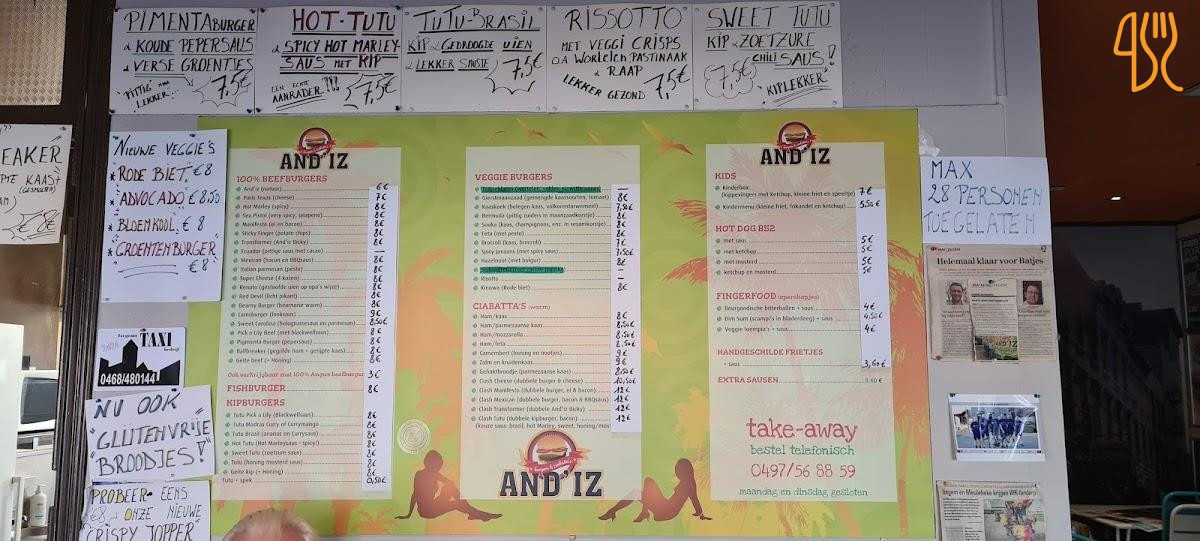 PIMENTABURGER
& KOUDE PEPERSAUS
& VERSE GROENTJES
PITTIG
LEKKER...
7,5€
HOT-TUTU
& SPICY HOT MARLEY
SAUS MET KIP
EEN ECHTE
AANRADER?!!
7,5€
TUTU-BRASIL
KIP & GEDROOGDE UIEN
& LEKKER SAUSJE
7,5€
RISSOTTO
MET VEGGI CRISPS
O.A WORTELEN PASTINAAK
& RAAP
LEKKER GEZOND 7,5€
SWEET TUTU
KIP & ZOETZURE
CHILI SAUS!
7,5€
"KIPLEKKER"
EAKER
PTE KAAS
8€
NIEUWE VEGGIE'S
* RODE BIET, €8
* ADVOCADO, €8,50
* BLOEMKOOL, €8
* GROENTENBURGER
€8
TAXI
0468/480144
NU OOK
"GLUTENVRIJE
BROODJES!"
PROBEER EENS
€8, ONZE NIEUWE
CRISPY JOPPER"
AND'IZ
100% BEEFBURGERS
And'iz (natuur) 6€
Paris Texas (cheese) 7€
Hot Marley (spicy) 8€
Sex Pistol (very spicy, jalapeno) 8€
Manifesto (ei en bacon) 8€
Sticky Finger (potato chips) 8€
Transformer (And'iz Bicky) 8€
Ecuador (pittige saus met cacao) —
Mexican (bacon en BBQsaus) 8€
Italian parmesan (pesto) 8€
Super Cheese (4 kazen) 8€
Renato (gestoofde uien op opa's wijze) 8€
Red Devil (licht pikant) 8€
Bearny Burger (bearnaise warm) 8€
Lamsburger (looksaus) 9€
Sweet Carolina (bolognaisesaus en parmesan) 8,50€
Pick a Lily Beef (met blackwellsaus) 8€
Pigmenta Burger (pepersaus) 8€
Ballbreaker (gegrilde ham + geraspte kaas) 8€
Geite beef (+ Honing) 8€
Ook verkrijgbaar met 100% Angus beefburger 3€
FISHBURGER 8€
KIPBURGERS
Tutu Pick a Lily (Blackwellsaus) 8€
Tutu Madras Curry of Currymango 8€
Tutu Brazil (ananas en Currysaus) 8€
Hot Tutu (Hot Marleysaus - spicy!) 8€
Sweet Tutu (zoetzure saus) 8€
Tutu (honing-mosterd saus) 8€
Geite kip (+ Honing) 8€
Tutu + spek 0,50€
VEGGIE BURGERS
Gierstmaanzaad (gemengde kaassoorten, tomaat) 8€
Kaaskoek (belegen kaas, volkorentarwemeel) 7,50€
Bermuda (pittig zuiders in maanzaadkorstje) 8€
Souka (kaas, champignons, enz. in sesamkorstje) 8€
Feta (met pesto) 8€
Broccoli (kaas, broccoli) 7€
Spicy Javaans (met spicy saus) 7,50€
Hazelnoot (met bulgur) 8€
Risotto —
Kinowa (Rode biet) 8€
CIABATTA'S (warm)
Ham/kaas 8€
Ham/parmezaanse kaas 8,50€
Ham/mozzarella 8,50€
Ham/feta 8,50€
Camembert (honing en nootjes) 9€
Zalm en kruidenkaas 9€
Gehaktbroodje (parmezaanse kaas) 8,50€
Clash Cheese (dubbele burger & cheese) 10,50€
Clash Manifesto (dubbele burger, ei & bacon) 12€
Clash Mexican (dubbele burger, bacon & BBQsaus) 12€
Clash Transformer (dubbele And'iz Bicky) 12€
Clash Tutu (dubbele kipburger, bacon) 12€
(keuze saus: brazil, hot Marley, sweet, honing/mos
AND'IZ
AND'IZ
KIDS
Kinderbox
(kippevingers met ketchup, kleine friet en speeltje) 7€
Kindermenu (kleine friet, frikandel en ketchup) 5,50€
HOT DOG B52
met saus 5€
met ketchup 5€
met mosterd 5€
ketchup en mosterd 5€
FINGERFOOD (aperohapjes)
Bourgondische bitterballen + saus 4€
Dim Sum (scampi's in bladerdeeg) + saus 4,50€
Veggie loempia's + saus 4€
HANDGESCHILDE FRIETJES
+ saus 3,60€
EXTRA SAUSEN 0,60€
take-away
bestel telefonisch
0497/56 88 59
maandag en dinsdag gesloten
MAX
28 PERSONEN
TOEGELATEN
Helemaal klaar voor Batjes
AND'IZ
Ingem en Meulebeke krijgen WK-fandorp